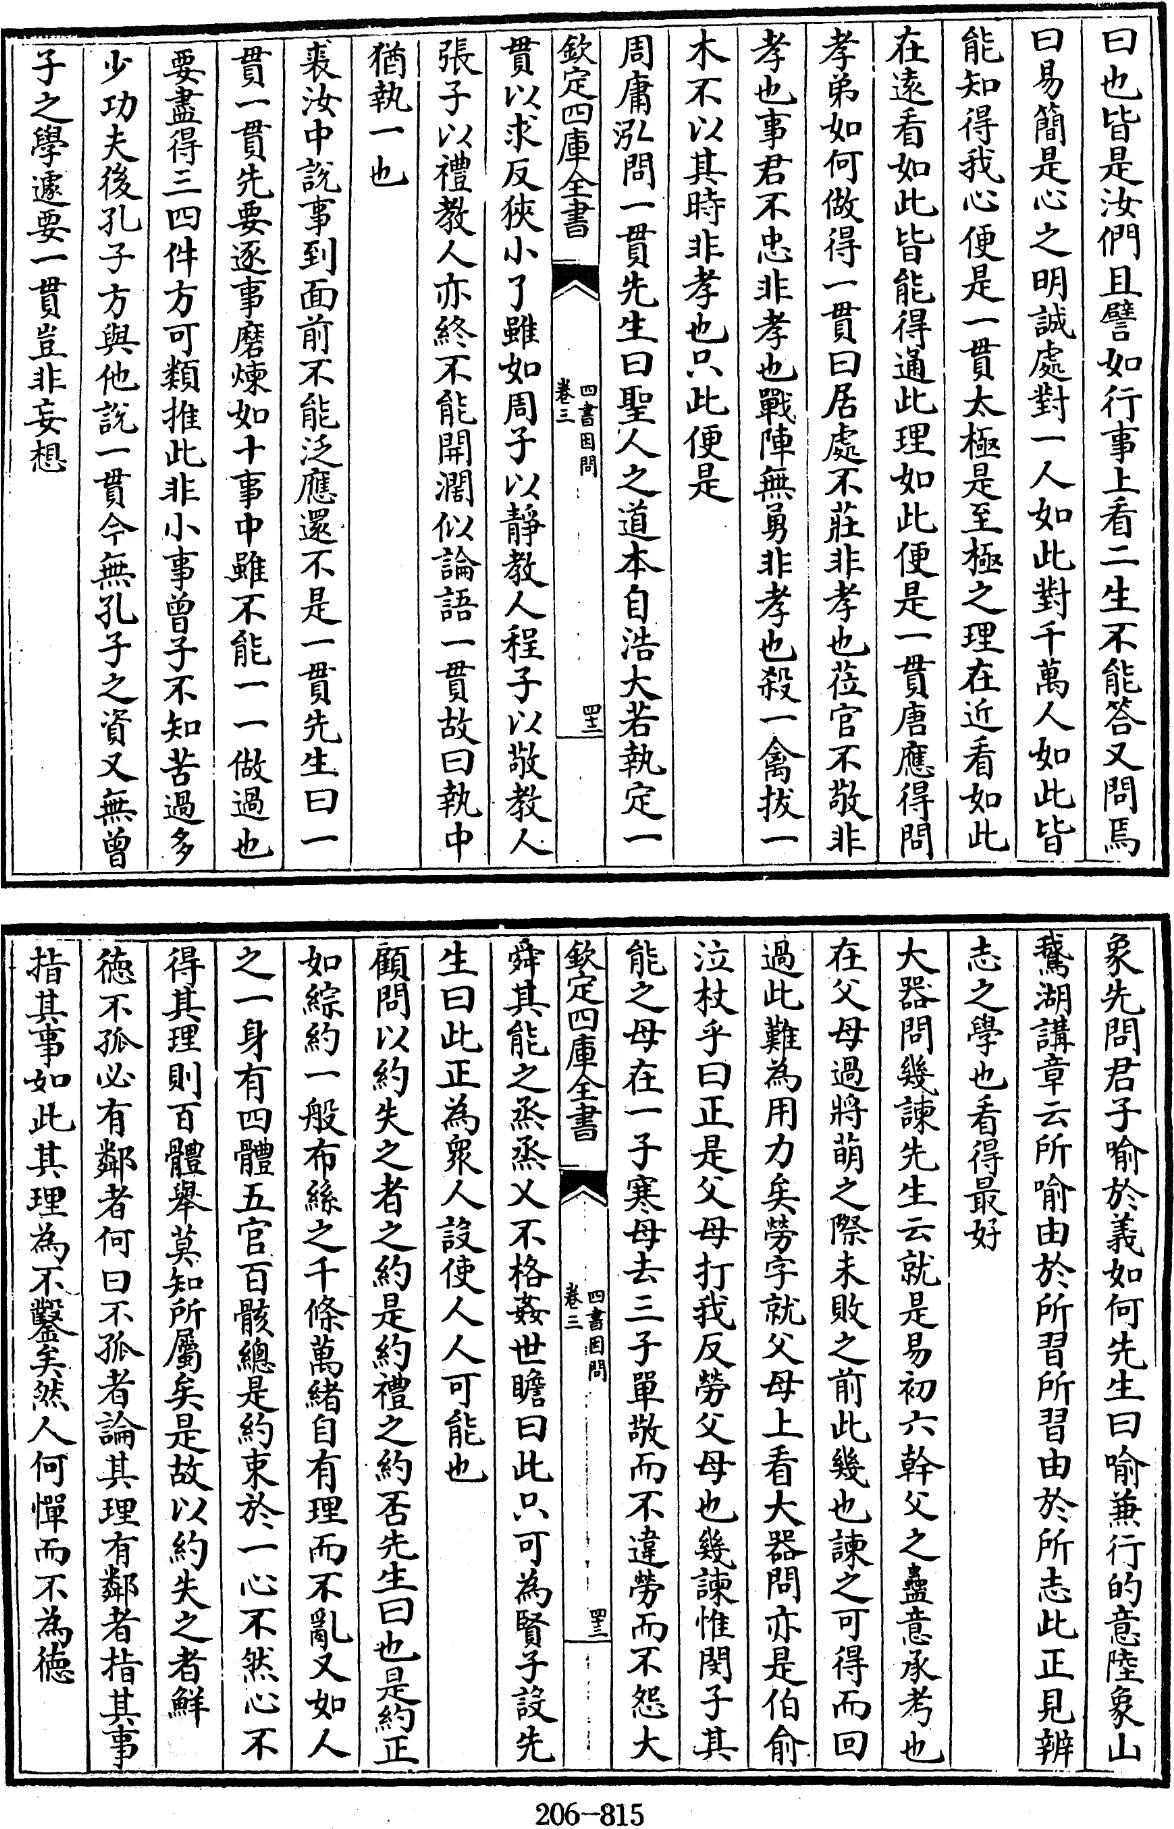 曰也皆是汝們且譬如行事上看二生不能答又問焉
曰易簡是心之明誠處對一人如此對千萬人如此皆
能知得我心便是一貫太極是至極之理在近看如此
在遠看如此皆能得通此理如此便是一貫唐應得問
孝弟如何做得一貫曰居處不莊非孝也莅官不敬非
孝也事君不忠非孝也戰陣無勇非孝也殺一禽拔一
木不以其時非孝也只此便是
周庸泓問一貫先生曰聖人之道本自浩大若執定一
欽定四庫全書
四書因問
卷三
四十三
貫以求反狹小了雖如周子以靜教人程子以敬教人
張子以禮教人亦終不能開濶似論語一貫故曰執中
猶執一也
裘汝中說事到面前不能泛應還不是一貫先生曰一
貫一貫先要逐事磨煉如十事中雖不能一一做過也
要盡得三四件方可類推此非小事曾子不知苦過多
少功夫後孔子方與他說一貫今無孔子之資又無曾
子之學遽要一貫豈非妄想
象先問君子喻於義如何先生曰喻兼行的意陸象山
鵞湖講章云所喻由於所習所習由於所志此正見辨
志之學也看得最好
大器問幾諫先生云就是易初六幹父之蠱意承考也
在父母過將萌之際未敗之前此幾也諫之可得而回
過此難為用力矣勞字就父母上看大器問亦是伯俞
泣杖乎曰正是父母打我反勞父母也幾諫惟閔子其
能之母在一子寒母去三子單敬而不違勞而不怨大
欽定四庫全書
四書因問
卷三
四十三
舜其能之烝烝乂不格姦世瞻曰此只可為賢子設先
生曰此正為衆人設使人人可能也
顧問以約失之者之約是約禮之約否先生曰也是約正
如綜約一般布絲之千條萬緒自有理而不亂又如人
之一身有四體五官百骸總是約束於一心不然心不
得其理則百體舉莫知所屬矣是故以約失之者鮮
德不孤必有鄰者何曰不孤者論其理有鄰者指其事
指其事如此其理為不鑿矣然人何憚而不為德
206-815